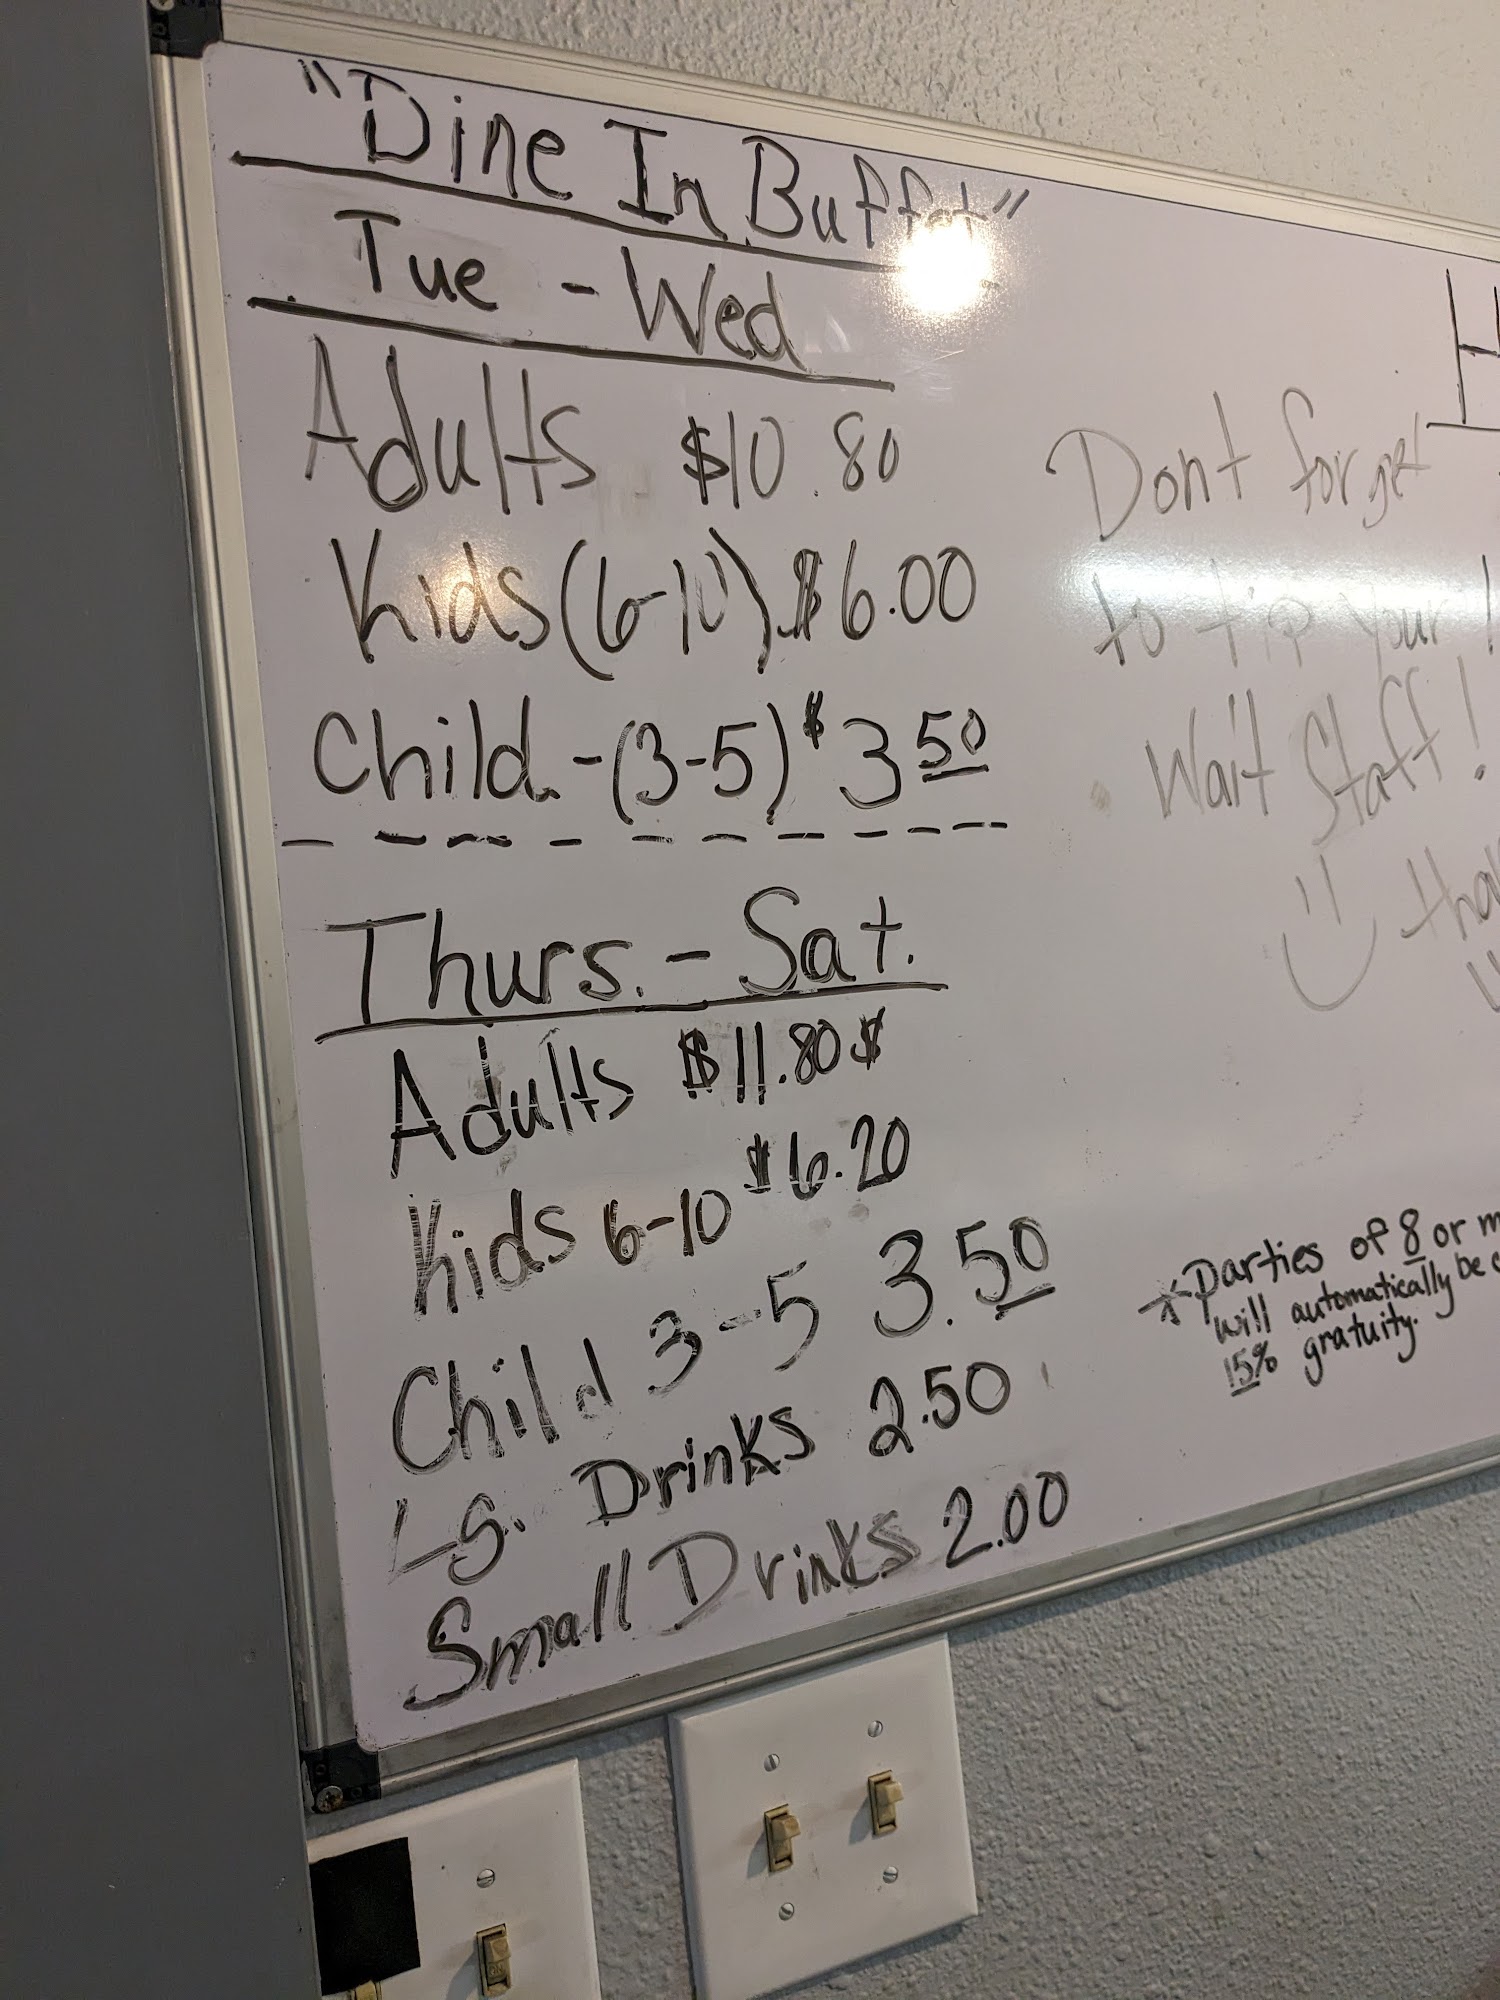 "Dine In Buffet"
Tue - Wed
Adults $10.80
Kids (6-10) $6.00
Child - (3-5) $3 50
Thurs. - Sat.
Adults $11.80 $
Kids 6-10 $6.20
Child 3-5 3.50
LG. Drinks 2.50
Small Drinks 2.00
H
Dont forget
to tip your
Wait Staff!
*Parties of 8 or
will automatically be
15% gratuity.